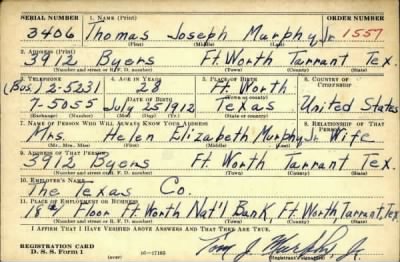 SERIAL NUMBER 1. NAME (Print) ORDER NUMBER
3406 Thomas Joseph Murphy Jr 1557
(First) (Middle) (Last)
2. ADDRESS (Print)
3912 Byers Ft. Worth Tarrant Tex.
(Number and street or R. F. D. number) (Town) (County) (State)
3. TELEPHONE 4. AGE IN YEARS 5. PLACE OF BIRTH 6. COUNTRY OF CITIZENSHIP
(Bus.) 2-5231 28 Ft. Worth
DATE OF BIRTH (Town or county)
7-5055 July 25 1912 Texas United States
(Exchange) (Number) (Mo.) (Day) (Yr.) (State or country)
7. NAME OF PERSON WHO WILL ALWAYS KNOW YOUR ADDRESS 8. RELATIONSHIP OF THAT PERSON
Mrs. Helen Elizabeth Murphy Jr. Wife
(Mr., Mrs., Miss) (First) (Middle) (Last)
9. ADDRESS OF THAT PERSON
3912 Byers Ft. Worth Tarrant Tex.
(Number and street or R. F. D. number) (Town) (County) (State)
10. EMPLOYER'S NAME
The Texas Co.
11. PLACE OF EMPLOYMENT OR BUSINESS
18th Floor Ft. Worth Nat'l Bank, Ft. Worth, Tarrant, Tex
(Number and street or R. F. D. number) (Town) (County) (State)
I AFFIRM THAT I HAVE VERIFIED ABOVE ANSWERS AND THAT THEY ARE TRUE.
REGISTRATION CARD
D. S. S. Form 1 (over) 16-17105 Tom J. Murphy, Jr.
(Registrant's signature)